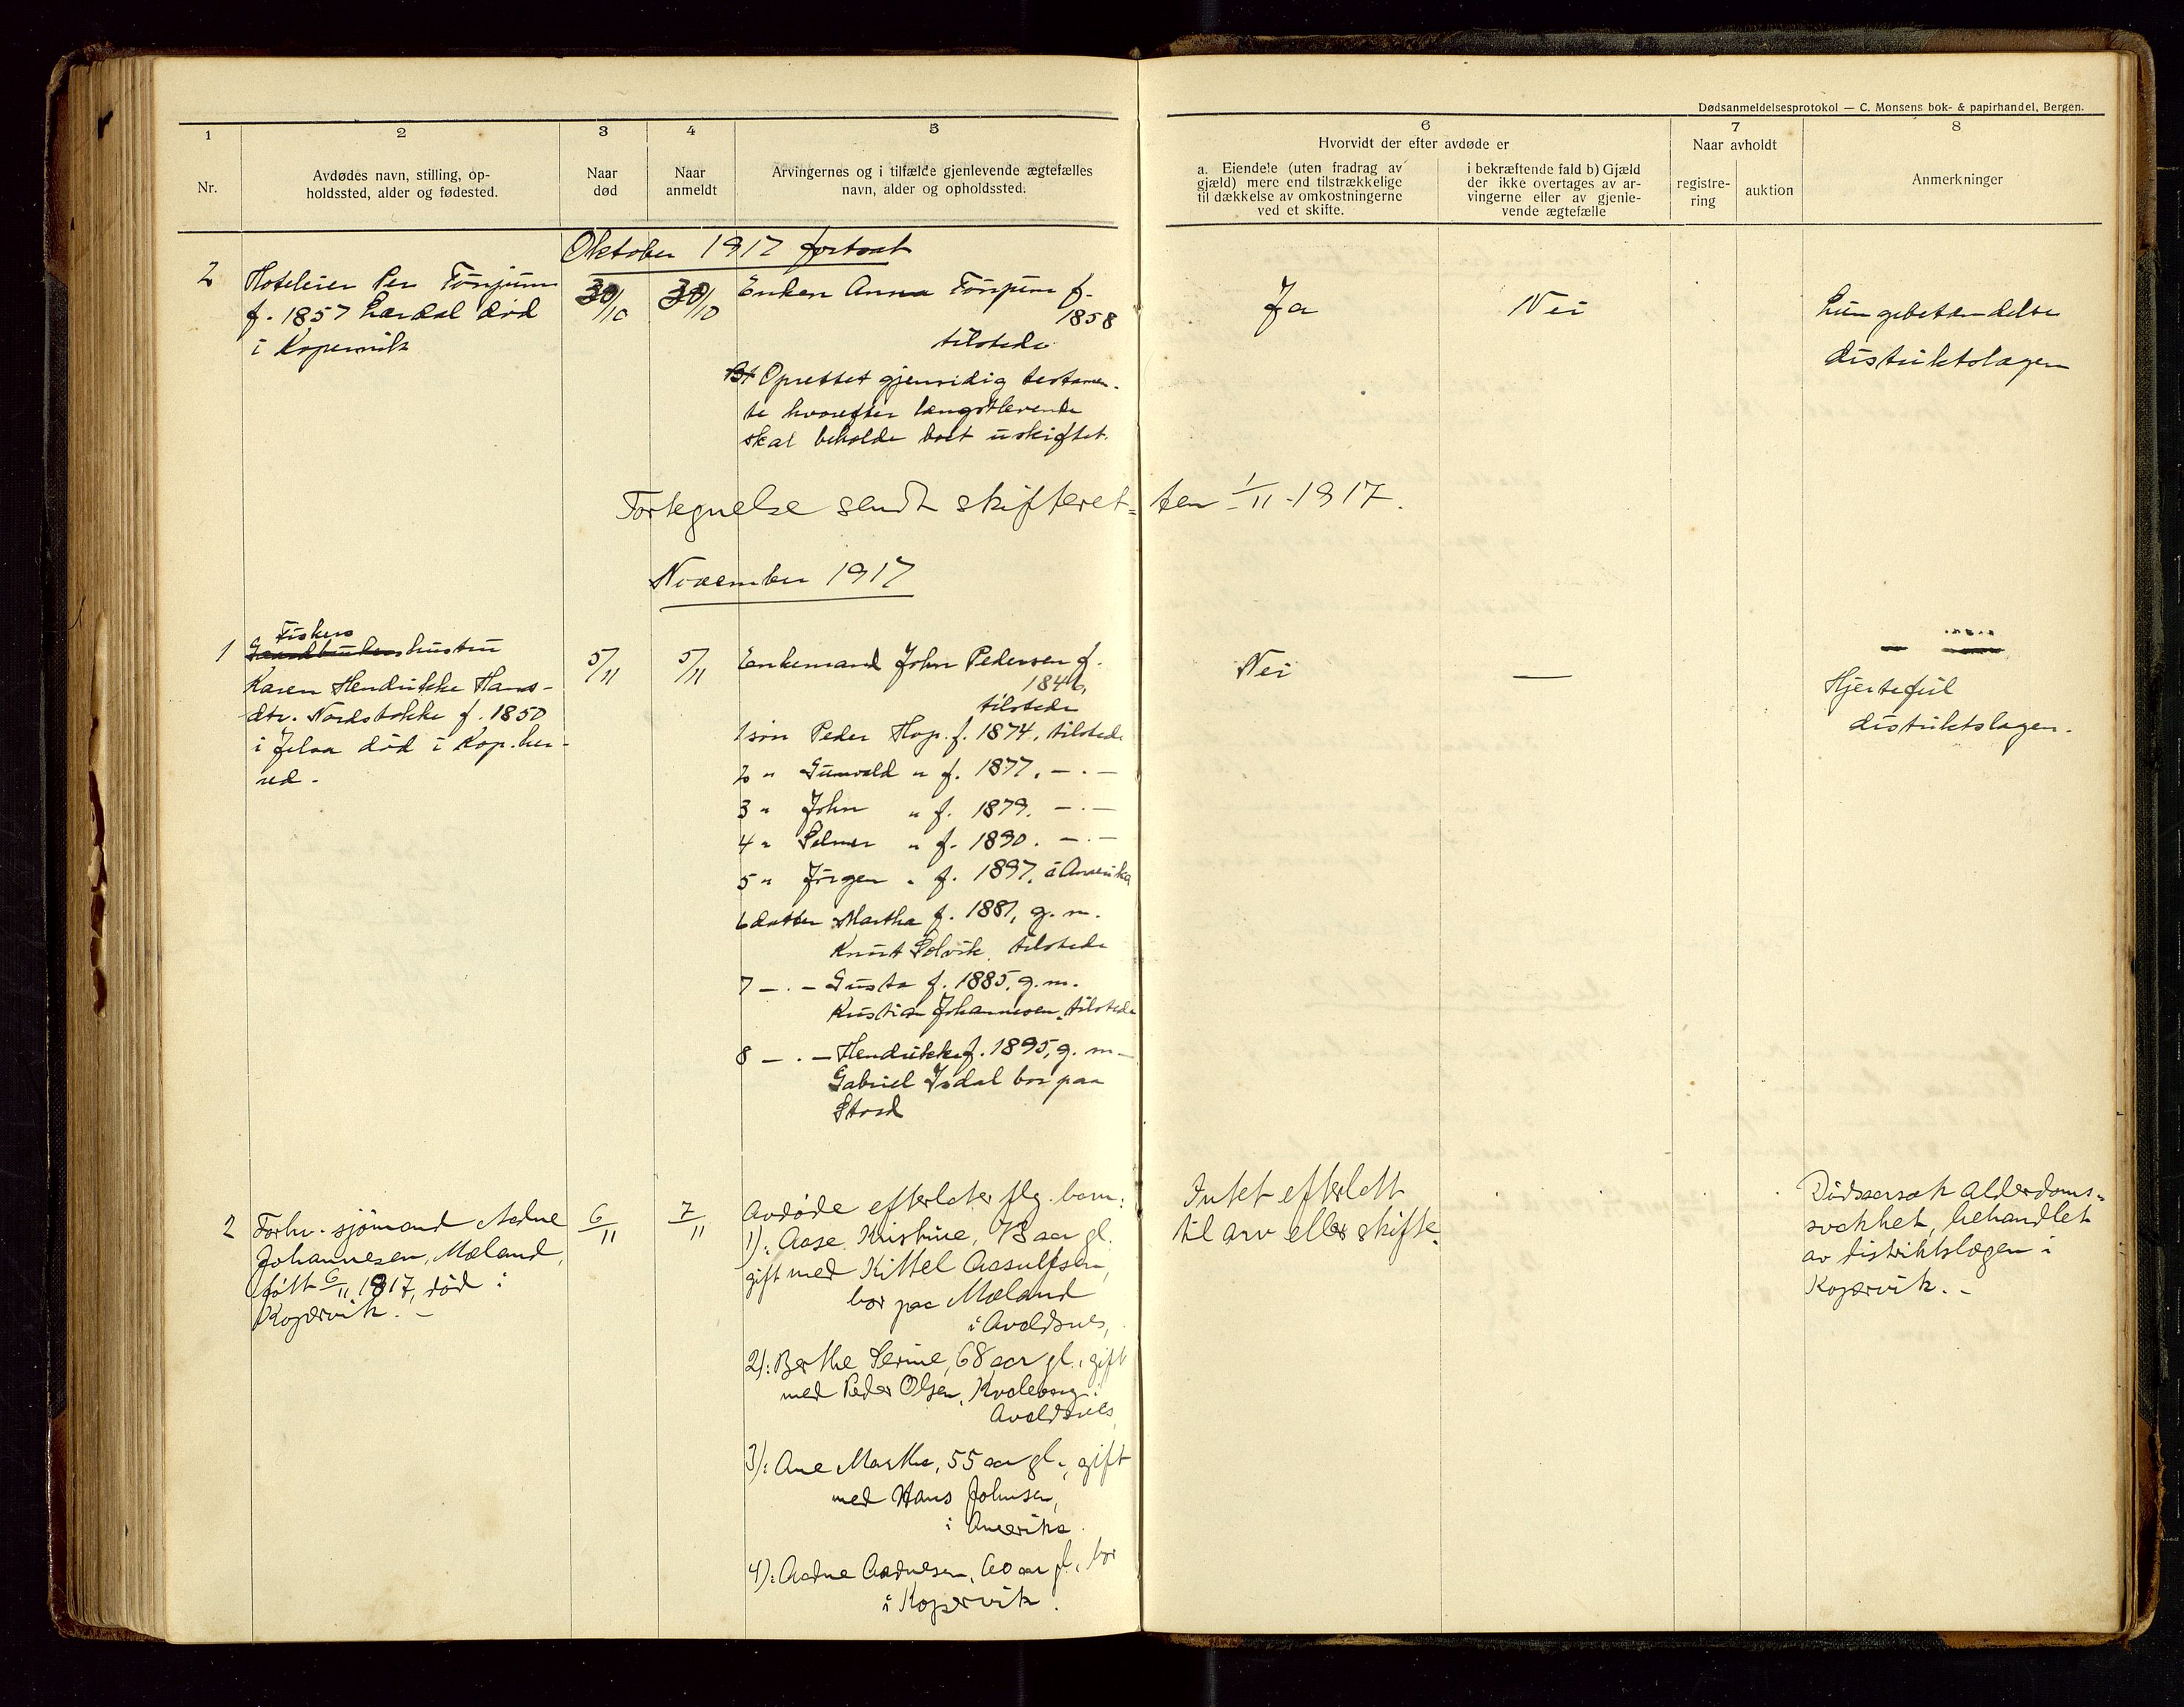 Dødsanmeldelsesprotokol — C. Monsens bok- & papirhandel, Bergen.
1
2
3
4
5
6
7
8
Nr.
Avdødes navn, stilling, op-
holdssted, alder og fødested.
Naar
død
Naar
anmeldt
Arvingernes og i tilfælde gjenlevende ægtefælles
navn, alder og opholdssted.
Hvorvidt der efter avdøde er
a. Eiendele (uten fradrag av
gjæld) mere end tilstrækkelige
til dækkelse av omkostningerne
ved et skifte.
i bekræftende fald b) Gjæld
der ikke overtages av ar-
vingerne eller av gjenle-
vende ægtefælle
Naar avholdt
registre-
ring
auktion
Anmerkninger
Oktober 1917 fortsat
2
Hoteleier Per Tønjum
f. 1857 Lærdal død
i Kopervik
30/10
30/10
Enken Anna Tønjum f.
1858
tilstede
Oprettet gjensidig testamen-
te hvorefter længstlevende
skal beholde boet uskiftet.
Ja
Nei
Lungebetændelse
distriktslægen
Fortegnelse sendt skifteret-
ten 1/11-1917.
November 1917
1
Fiskers
Gaardbrukers hustru
Karen Hendrikke Hans-
dtr. Nordstokke f. 1850
i Jelsa død i Kop. her-
red.
5/11
5/11
Enkemand John Pedersen f.
1846,
tilstede
1 søn Peder Hop. f. 1874, tilstede
2 " Gunvald " f. 1877. — . —
3 " John " f. 1879. — . —
4 " Selmer " f. 1890. — . —
5 " Jørgen " f. 1897. i Amerika
6 datter Martha f. 1881, g. m.
Knut Solvik, tilstede
7 — . — Gusta f. 1885, g. m.
Kristian Johannesen, tilstede
8 — . — Hendrikke f. 1895, g. m.
Gabriel Isdal bor paa
Stord
Nei
—
Hjertefeil
distriktslægen.
2
Forhv. sjømand Aadne
Johannesen, Mæland,
født 6/11 1817, død i
Kopervik. -
6/11
7/11
Avdøde efterlater flg. barn:
1): Aase Kristine, 73 aar gl.
gift med Kittel Aasulfsen,
bor paa Mæland
i Avaldsnes,
2): Berthe Serine, 68 aar gl., gift
med Peder Olsen, Kvalevaag i
Avaldsnes
3): Ane Martha, 55 aar gl., gift
med Hans Johnsen,
i Amerika.
4): Aadne Aadnesen, 60 aar gl., bor
i Kopervik.
Intet efterlatt
til arv eller skifte.
Dødsaarsak Alderdoms-
svakhet, behandlet
av distriktslægen i
Kopervik. -